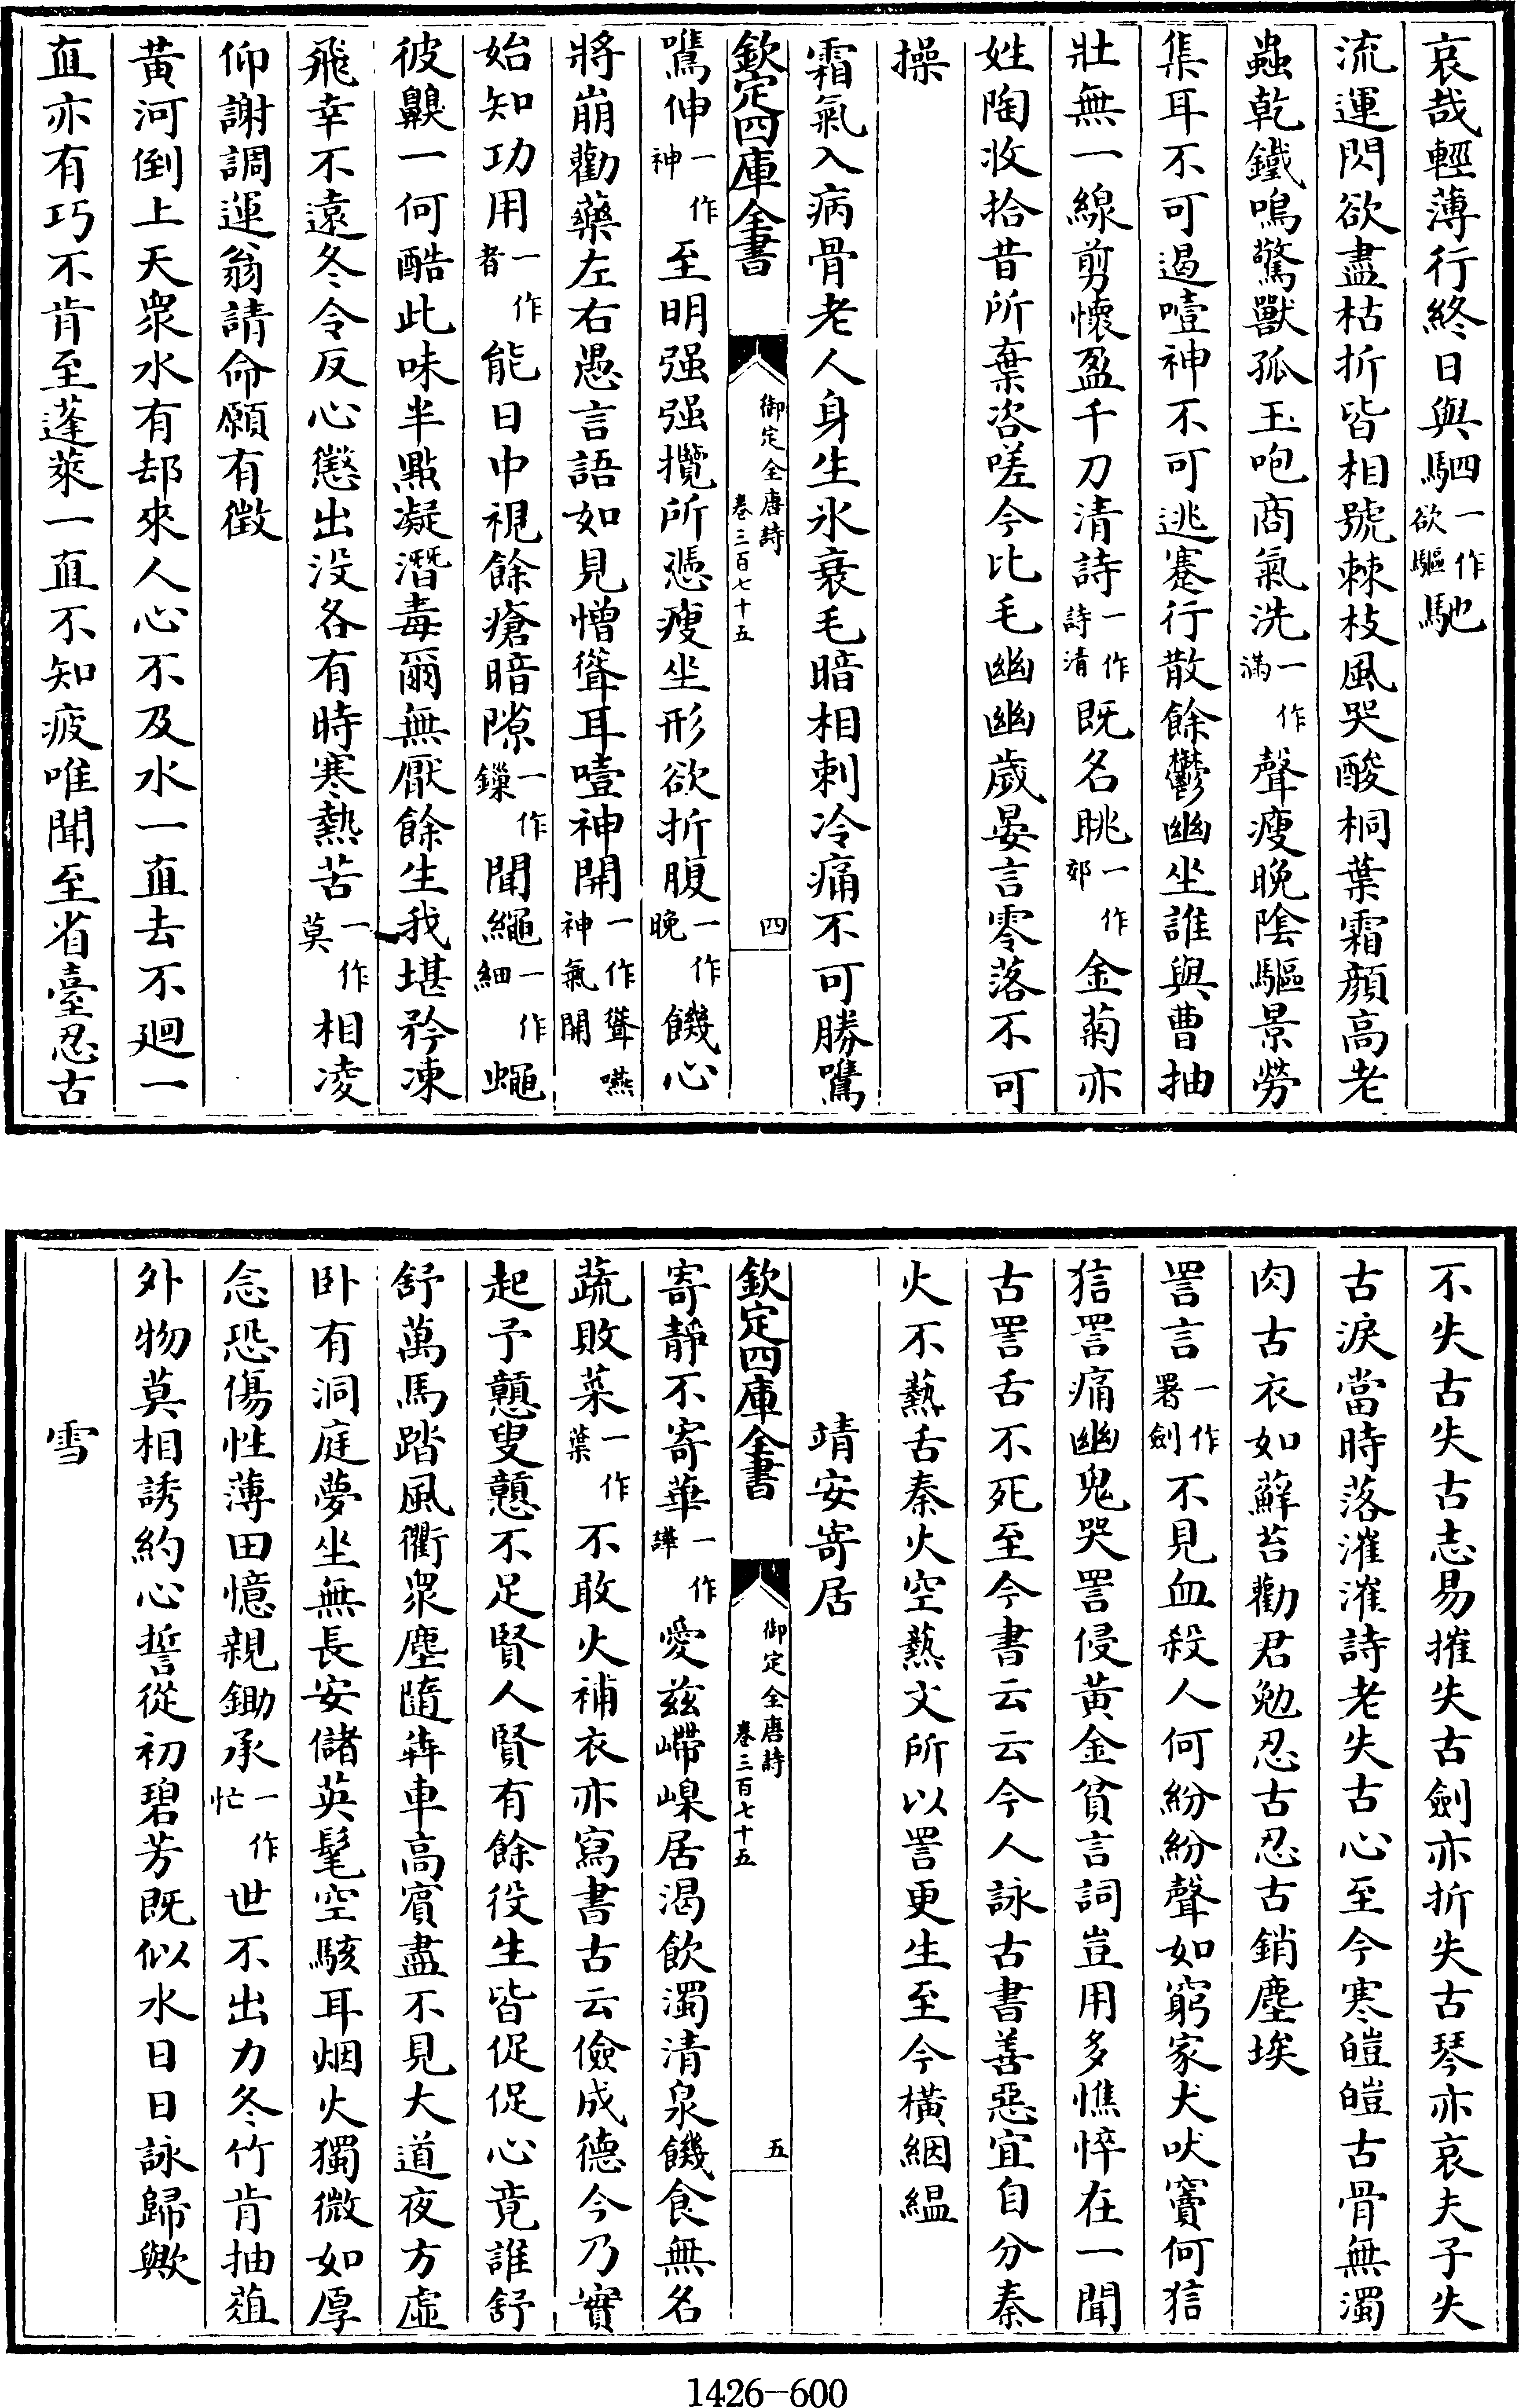 哀哉輕薄行終日與駟一作欲驅馳
流運閃欲盡枯折皆相號棘枝風哭酸桐葉霜顔高老
蟲乾鐵鳴驚獸孤玉咆商氣洗一作滿聲瘦晚陰驅景勞
集耳不可遏噎神不可逃蹇行散餘鬱幽坐誰與曹抽
壯無一線剪懷盈千刀清詩一作詩清既名朓一作郊金菊亦
姓陶收拾昔所棄咨嗟今比毛幽幽歲晏言零落不可
操
霜氣入病骨老人身生氷衰毛暗相刺冷痛不可勝鷕
欽定四庫全書
御定全唐詩
卷三百七十五
四
鷕伸一作神至明强强攬所憑瘦坐形欲折腹一作晚饑心
將崩勸藥左右愚言語如見憎聳耳噎神開一作聳嚥神氣開
始知功用一作者能日中視餘瘡暗隙一作鏁聞繩一作細蠅
彼齅一何酷此味半點凝潛毒爾無厭餘生我堪矜凍
飛幸不遠冬令反心懲出没各有時寒熱苦一作莫相凌
仰謝調運翁請命願有徵
黄河倒上天衆水有却來人心不及水一直去不廻一
直亦有巧不肯至蓬萊一直不知疲唯聞至省臺忍古
不失古失古志易摧失古劍亦折失古琴亦哀夫子失
古淚當時落漼漼詩老失古心至今寒皚皚古骨無濁
肉古衣如蘚苔勸君勉忍古忍古銷塵埃
詈言一作署劍不見血殺人何紛紛聲如窮家犬吠竇何狺
狺詈痛幽鬼哭詈侵黄金貧言詞豈用多憔悴在一聞
古詈舌不死至今書云云今人詠古書善惡宜自分秦
火不爇舌秦火空爇文所以詈更生至今横絪緼
靖安寄居
欽定四庫全書
御定全唐詩
卷三百七十五
五
寄靜不寄華一作譁愛兹嵽嵲居渴飲濁清泉饑食無名
蔬敗菜一作葉不敢火補衣亦寫書古云儉成德今乃實
起予戇叟戇不足賢人賢有餘役生皆促促心竟誰舒
舒萬馬踏風衢衆塵隨犇車高賓盡不見大道夜方虛
卧有洞庭夢坐無長安儲英髦空駭耳烟火獨微如厚
念恐傷性薄田憶親鋤承一作忙世不出力冬竹肯抽菹
外物莫相誘約心誓從初碧芳既似水日日詠歸歟
雪
1426-600